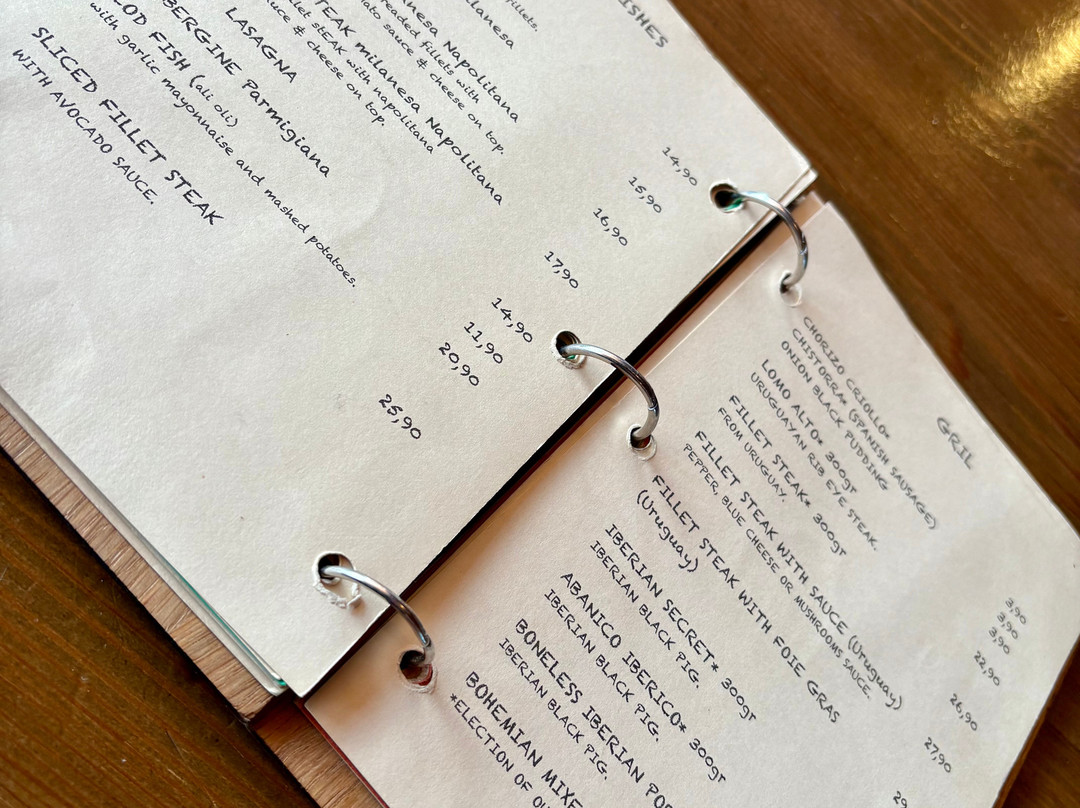 ISHES
fillets.
milanesa
anesa Napolitana
readed fillets with
ato sauce & cheese on top.
STEAK milanesa Napolitana
llet stEAK with napolitana
uce & cheese on top.
LASAGNA
BERGINE Parmigiana
COD FISH (ali oli)
with garlic mayonnaise and mashed potatoes.
SLICED FILLET STEAK
WITH AVOCADO SAUCE.
14,90
15,90
16,90
17,90
14,90
11,90
20,90
25,90
GRILL
CHORIZO CRIOLLO*
CHISTORRA* (SPANISH SAUSAGE)
ONION BLACK PUDDING
LOMO ALTO* 300gr
URUGUAYAN RIB EYE STEAK.
FILLET STEAK* 300gr
FROM URUGUAY.
FILLET STEAK WITH SAUCE (Uruguay)
PEPPER, BLUE CHEESE OR MUSHROOMS SAUCE.
FILLET STEAK WITH FOIE GRAS
(Uruguay)
IBERIAN SECRET* 300gr
IBERIAN BLACK PIG.
ABANICO IBERICO* 300gr
IBERIAN BLACK PIG.
BONELESS IBERIAN POR
IBERIAN BLACK PIG.
BOHEMIAN MIXE
*ELECTION OF OU
3,90
3,90
3,90
22,90
26,90
27,90
29